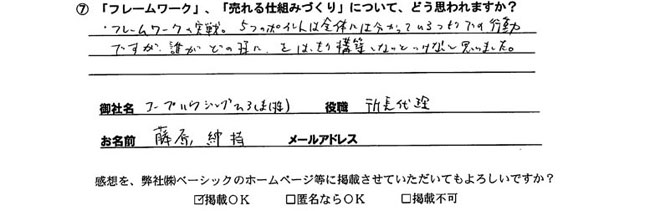 ⑦ 「フレームワーク」、「売れる仕組みづくり」について、どう思われますか？
・フレームワークの実戦。5つのポイントは全体には分かっているつもりでの行動
ですが、誰が どの様に をはっきり構築しないといけないと思いました。
御社名 コープハウジングひろしま(株) 役職 所長代理
お名前 藤原 メールアドレス
感想を、弊社㈱ベーシックのホームページ等に掲載させていただいてもよろしいですか？
☑掲載ＯＫ □匿名ならＯＫ □掲載不可